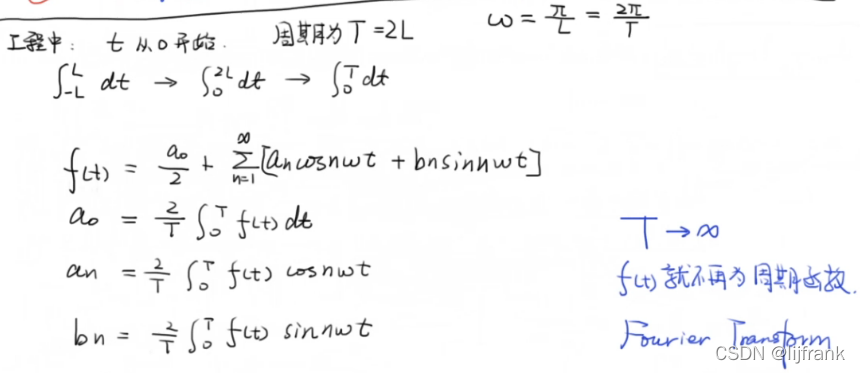 工程中： t 从 0 开始. 周期为 T = 2L ω = π/L = 2π/T
∫_{-L}^{L} dt → ∫_0^{2L} dt → ∫_0^T dt
f(t) = a₀/2 + ∑_{n=1}^{∞} [aₙcosnωt + bₙsinnωt]
a₀ = 2/T ∫_0^T f(t) dt
aₙ = 2/T ∫_0^T f(t) cosnωt
bₙ = 2/T ∫_0^T f(t) sinnωt
T → ∞
f(t) 就不再为周期函数.
Fourier Transform
CSDN @lijfrank